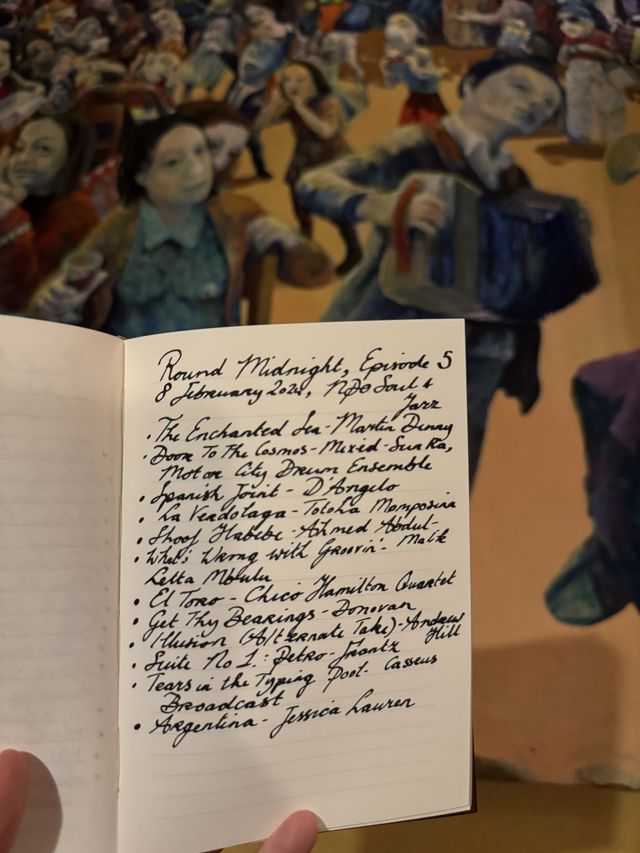 Round Midnight, Episode 5
8 February 2024, NPO Soul &
Jazz
• The Enchanted Sea - Martin Denny
• Door To The Cosmos - Mixed - Sun Ra,
Motor City Drum Ensemble
• Spanish Joint - D'Angelo
• La Verdolaga - Totó La Momposina
• Shoof Habebe - Ahmed Abdul-
Malik
• What's Wrong with Groovin' -
Letta Mbulu
• El Toro - Chico Hamilton Quartet
• Get Thy Bearings - Donovan
• Illusion (Alternate Take) - Andrew
Hill
• Suite No 1: Petro - Frantz
Casseus
• Tears in the Typing Pool -
Broadcast
• Argentina - Jessica Lauren